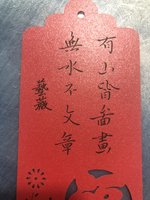 有山皆啚畫
無水不文章
藝薇